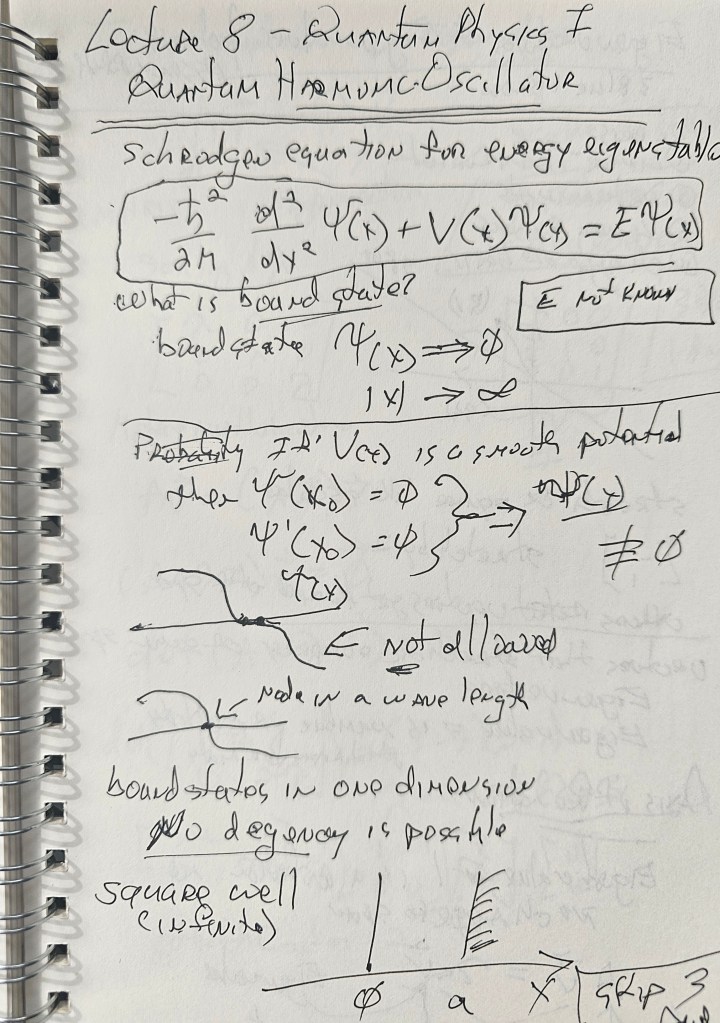 Lecture 8 - Quantum Physics I
Quantum Harmonic Oscillator
Schrodger equation for energy eigenstable
-ħ²/2M d²/dx² Ψ(x) + V(x) Ψ(x) = E Ψ(x)
What is bound state?
E not known
bound state Ψ(x) ⟹ ϕ
|x| → ∞
If V(x) is a smooth potential
then Ψ(x₀) = ϕ
Ψ'(x₀) = ϕ } ⟹ Ψ(x) ≢ ϕ
Ψ(x)
← Not allowed
← Node in a wave length
bound states in one dimension
No degency is possible
Square well
(infinite)
ϕ a x
Skip 3